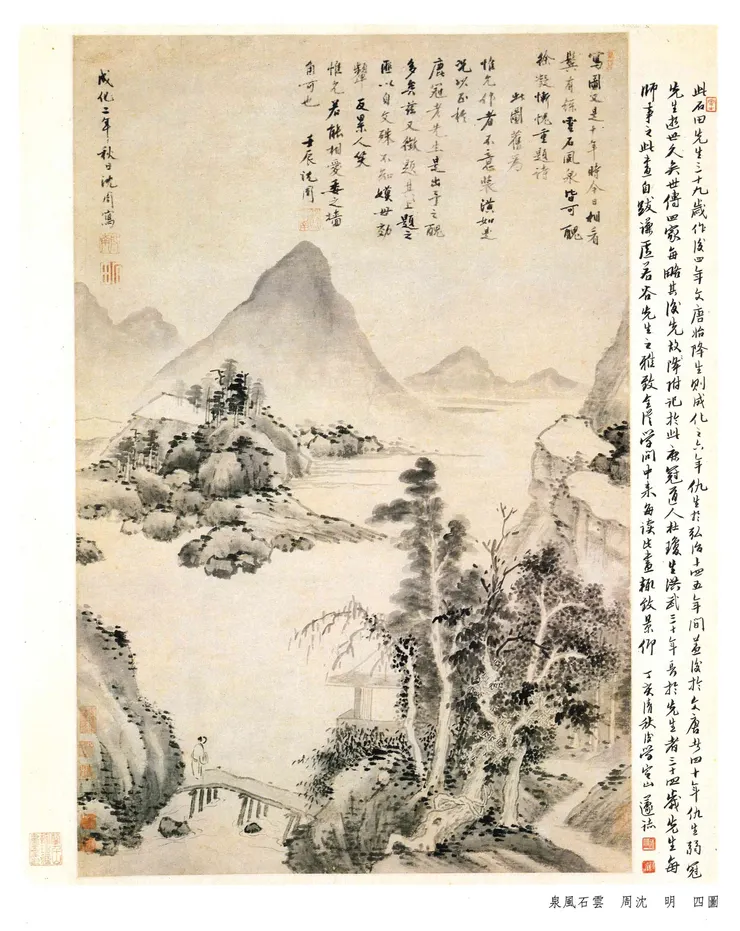 此石田先生三十九歲作後四年文唐始降生則成化之六年仇生於弘治十四五年間蓋後於文唐四十年仇生弱冠
先生逝世久矣世傳四家每略其後先故附記於此鹿冠道人杜瓊生洪武三十年長於先生者三十四歲先生每
師事之此畫自跋謙虛若谷先生之雅致全從學問中來每讀此畫輒致景仰 丁亥清秋後學定山誌
寫圖又是十年時今日相看
鬢有絲雲石風泉皆可醜
徐凝慚愧重題詩
此圖舊為
惟允作者不意裝潢如是
況以示於
鹿冠老先生是出予之醜
多矣茲又徵題其上題之
匪以自文殊不知嫫母效
顰反累人笑
惟允若能相愛委之墻
角可也 壬辰沈周
成化二年秋日沈周寫
圖四 明 沈周 雲石風泉